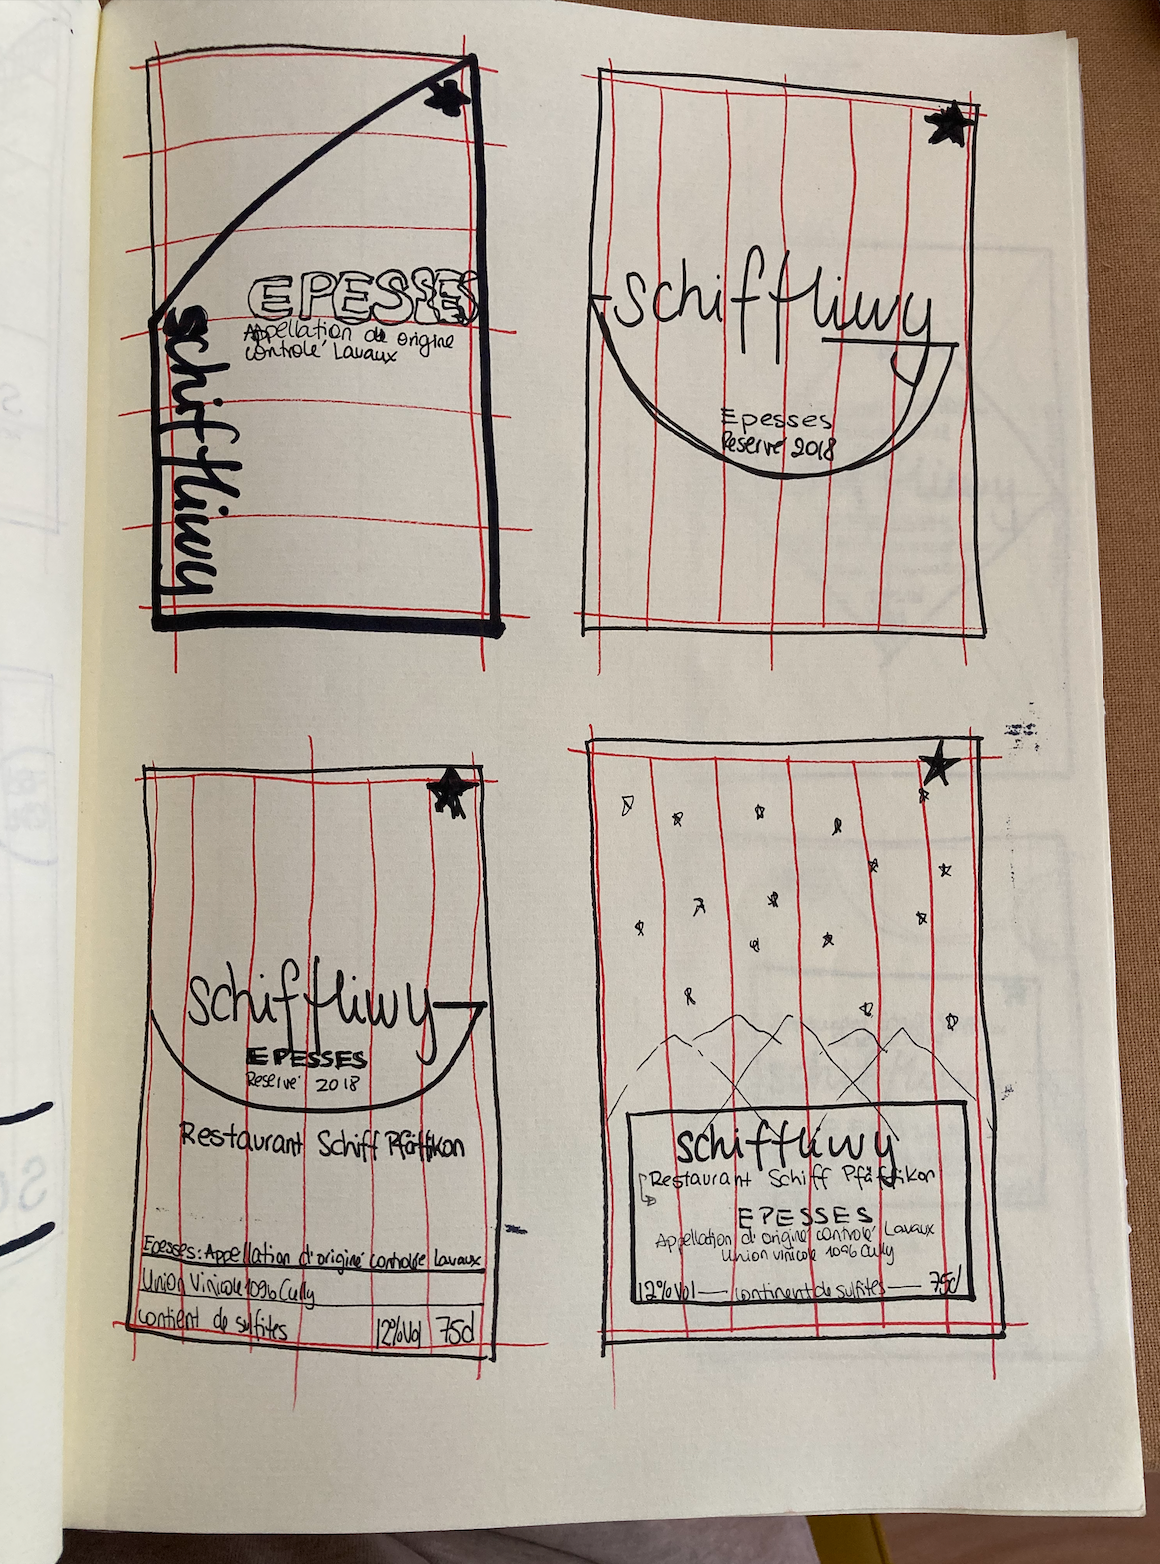 EPESSES
Appellation de origine
controlé Lavaux
schiffliwy
schiffliwy
Epesses
Reserve 2018
schiffliwy
EPESSES
Reserve 2018
Restaurant Schiff Pfäffikon
Epesses: Appellation d'origine controlée Lavaux
Union Vinicole 1096 Cully
contient de sulfites 12%Vol 75cl
schiffliwy
Restaurant Schiff Pfäffikon
EPESSES
Appellation d'origine controlé Lavaux
Union vinicole 1096 Cully
12%Vol — continent de sulfites — 75cl